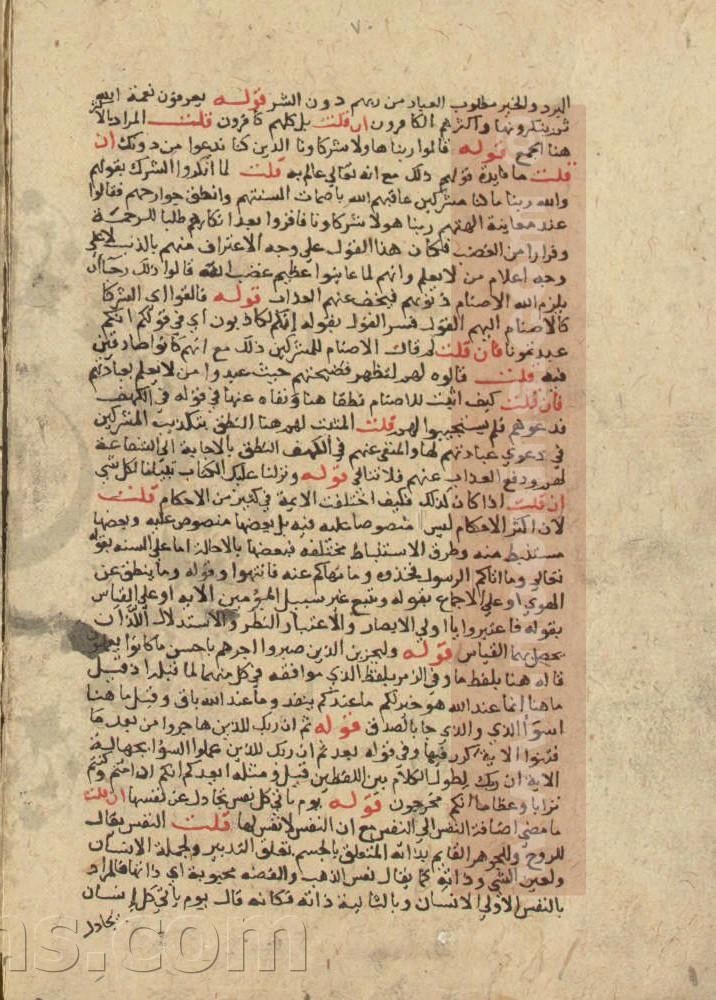 ٧٠
البرد والخير مطلوب العباد من ربهم دون الشر قوله يعرفون نعمة الله
ثم ينكرونها واكثرهم الكافرون ان قلت بل كلهم كافرون قلت المراد بالاكثر
هنا الجمع قوله قالوا ربنا هاولا شركاونا الذين كنا ندعوا من دونك ان
قلت ما فايدة قولهم ذلك مع انه تعالي عالم به قلت لما انكروا الشرك بقولهم
والله ربنا ما كنا مشركين عاقبهم الله باصمات السنتهم وانطق جوارحهم فقالوا
عند معاينة الهتهم ربنا هولا شركاونا فاقروا بعد انكارهم طلبا للرحمة
وفرارا من الغضب فكان هذا القول علي وجه الاعتراف منهم بالذنب لا علي
وجه اعلام من لا يعلم وانهم لما عاينوا عظيم غضب الله قالوا ذلك رجا ان
يلزم الله الاصنام ذنوبهم فيخف عنهم العذاب قوله فالقوا اي الشركا
كالاصنام اليهم القول فسر القول بقوله انكم لكاذبون اي في قولكم انكم
عبدتمونا فان قلت لم قالت الاصنام للمشركين ذلك مع انهم كانوا صادقين
فيه قلت قالوه لهم لتظهر فضيحتهم حيث عبدوا من لا يعلم بعبادتهم
فان قلت كيف اثبت للاصنام نطقا هنا ونفاه عنها في قوله في الكهف
فدعوهم فلم يستجيبوا لهم قلت المثبت لهم هنا النطق بتكذيب المشركين
في دعوي عبادتهم لها والمنفي عنهم في الكهف النطق بالاجابة الي الشفاعة
لهم ودفع العذاب عنهم فلا تنافي قوله ونزلنا عليك الكتاب تبيانا لكل شي
ان قلت اذا كان كذلك فكيف اختلفت الايمة في كثير من الاحكام قلت
لان اكثر الاحكام ليس منصوصا عليه فيه بل بعضها منصوص عليه وبعضها
مستنبط منه وطرق الاستنباط مختلفة فبعضها بالاحالة اما علي السنه بقوله
تعالي وما اتاكم الرسول فخذوه وما نهاكم عنه فانتهوا وقوله وما ينطق عن
الهوي او علي الاجماع بقوله ويتبع غير سبيل المؤمنين الايه او علي القياس
بقوله فاعتبروا يا اولي الابصار والاعتبار النظر والاستدلال اللذان
يحصل بهما القياس قوله وليجزين الذين صبروا اجرهم باحسن ما كانوا يعملون
قاله هنا بلفظ ما وفي الزمر بلفظ الذي موافقة في كل منهما لما قبله اذ قبل
ما هنا انما عند الله هو خير لكم ما عندكم ينفد وما عند الله باق وقبل ما هنا
اسوا الذي والذي جا بالصدق قوله ثم ان ربك للذين هاجروا من بعد ما
فتنوا الاية كرر فيها وفي قوله بعد ثم ان ربك للذين عملوا السؤ بجهالة
الاية ان ربك لطول الكلام بين اللفظين قبل ومثله ايعدكم انكم اذا متم وكنتم
ترابا وعظاما انكم مخرجون قوله يوم ياتي كل نفس تجادل عن نفسها ان قلت
ما معني اضافة النفس الي النفس مع ان النفس لا نفس لها قلت النفس يقال
للروح وللجوهر القايم بذاته المتعلق بالجسم تعلق التدبير ولجملة الانسان
ولعين الشي وذاته كما يقال نفس الذهب والفضه محبوبة اي ذاتها فالمراد
بالنفس الاولي الانسان وبالثانية ذاته فكانه قال يوم ياتي كل انسان
يجادل
ns.com